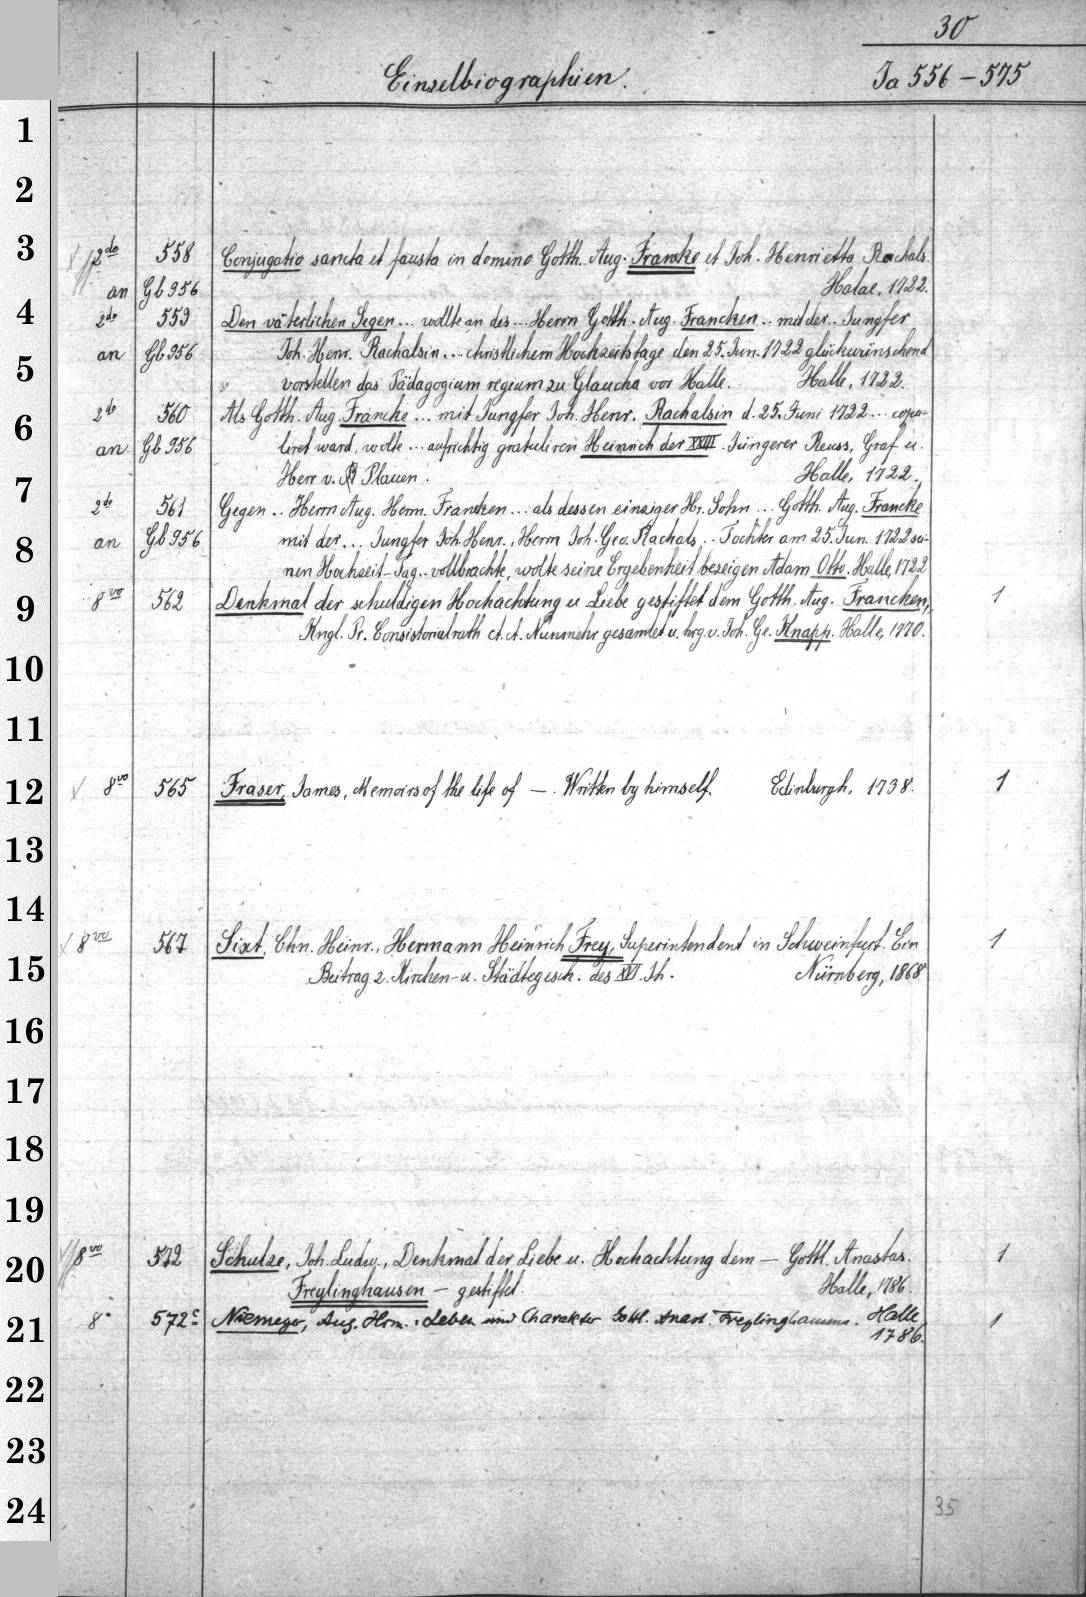 30
Einzelbiographien.
Ja 556 – 575
1
2
3
2do 558 Conjugatio sancta et fausta in domino Gotth. Aug. Francke et Joh. Henrietta Rachals.
an Gb 956 Halae, 1722.
4
2do 559 Den väterlichen Segen ... wollte an des ... Herrn Gotth. Aug. Francken .. mit der .. Jungfer
an Gb 956 Joh. Henr. Rachalsin ... christlichem Hochzeitstage den 25. Jun. 1722 glückwünschend
5
vorstellen das Pädagogium regium zu Glaucha vor Halle. Halle, 1722.
2do 560 Als Gotth. Aug. Francke ... mit Jungfer Joh. Henr. Rachalsin d. 25. Juni 1722 ... copu-
6
an Gb 956 liret ward, wolte ... aufrichtig gratuliren Heinrich der XXIII. Jüngerer Reuss, Graf u.
Herr v. Plauen. Halle, 1722.
7
2do 561 Gegen .. Herrn Aug. Herm. Francken ... als dessen einziger Hr. Sohn ... Gotth. Aug. Francke
an Gb 956 mit der ... Jungfer Joh. Henr., Herrn Joh. Geo. Rachals, .. Tochter am 25. Jun. 1722 sei-
8
nen Hochzeit-Tag .. vollbrachte, wolte seine Ergebenheit bezeigen Adam Otto. Halle, 1722
8vo 562 Denkmal der schuldigen Hochachtung u. Liebe gestiftet dem Gotth. Aug. Francken, 1
9
Kngl. Pr. Consistorialrath et. c. Nunmehr gesamlet u. hrg. v. Joh. Ge. Knapp. Halle, 1770.
10
11
12
8vo 565 Fraser, James, Memoirs of the life of —. Written by himself. Edinburgh, 1738. 1
13
14
8vo 567 Sixt, Chn. Heinr., Hermann Heinrich Frey, Superintendent in Schweinfurt. Ein 1
15
Beitrag z. Kirchen- u. Städtegesch. des XVI. Jh. Nürnberg, 1868
16
17
18
19
8vo 572 Schulze, Joh. Ludw., Denkmal der Liebe u. Hochachtung dem — Gottl. Anastas. 1
20
Freylinghausen — gestiftet. Halle, 1786.
8° 572c Niemeyer, Aug. Hrm.: Leben und Charakter Gottl. Anast. Freylinghausens. Halle 1
21
1786.
22
23
24
35